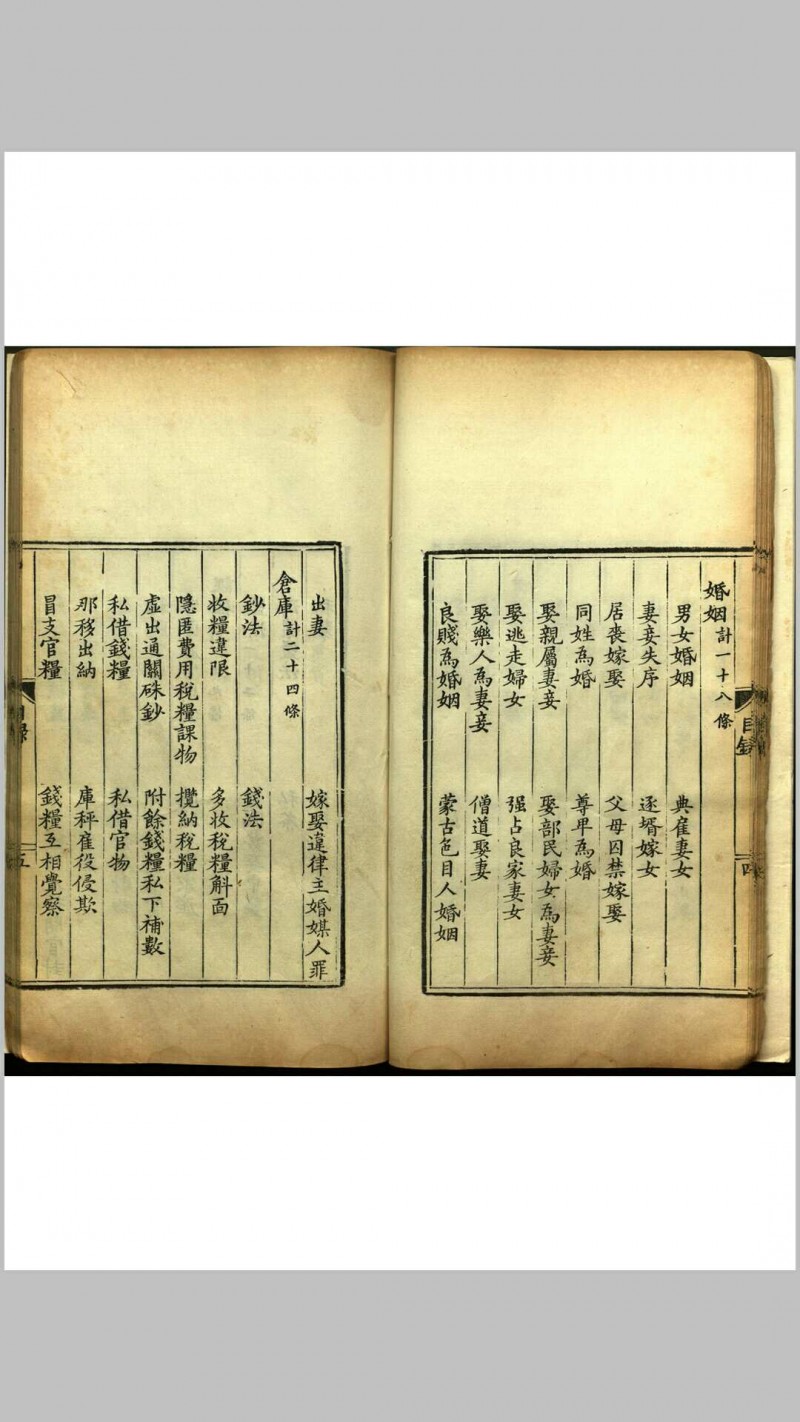 婚姻計一十八條
男女婚姻 典雇妻女
妻妾失序 逐壻嫁女
居喪嫁娶 父母囚禁嫁娶
同姓為婚 尊卑為婚
娶親屬妻妾 娶部民婦女為妻妾
娶逃走婦女 强占良家妻女
娶樂人為妻妾 僧道娶妻
良賤為婚姻 蒙古色目人婚姻
目錄 四
出妻 嫁娶違律主婚媒人罪
倉庫計二十四條
鈔法 錢法
收糧違限 多收稅糧斛面
隱匿費用稅糧課物 攬納稅糧
虛出通關硃鈔 附餘錢糧私下補數
私借錢糧 私借官物
那移出納 庫秤雇役侵欺
冒支官糧 錢糧互相覺察
目錄 五